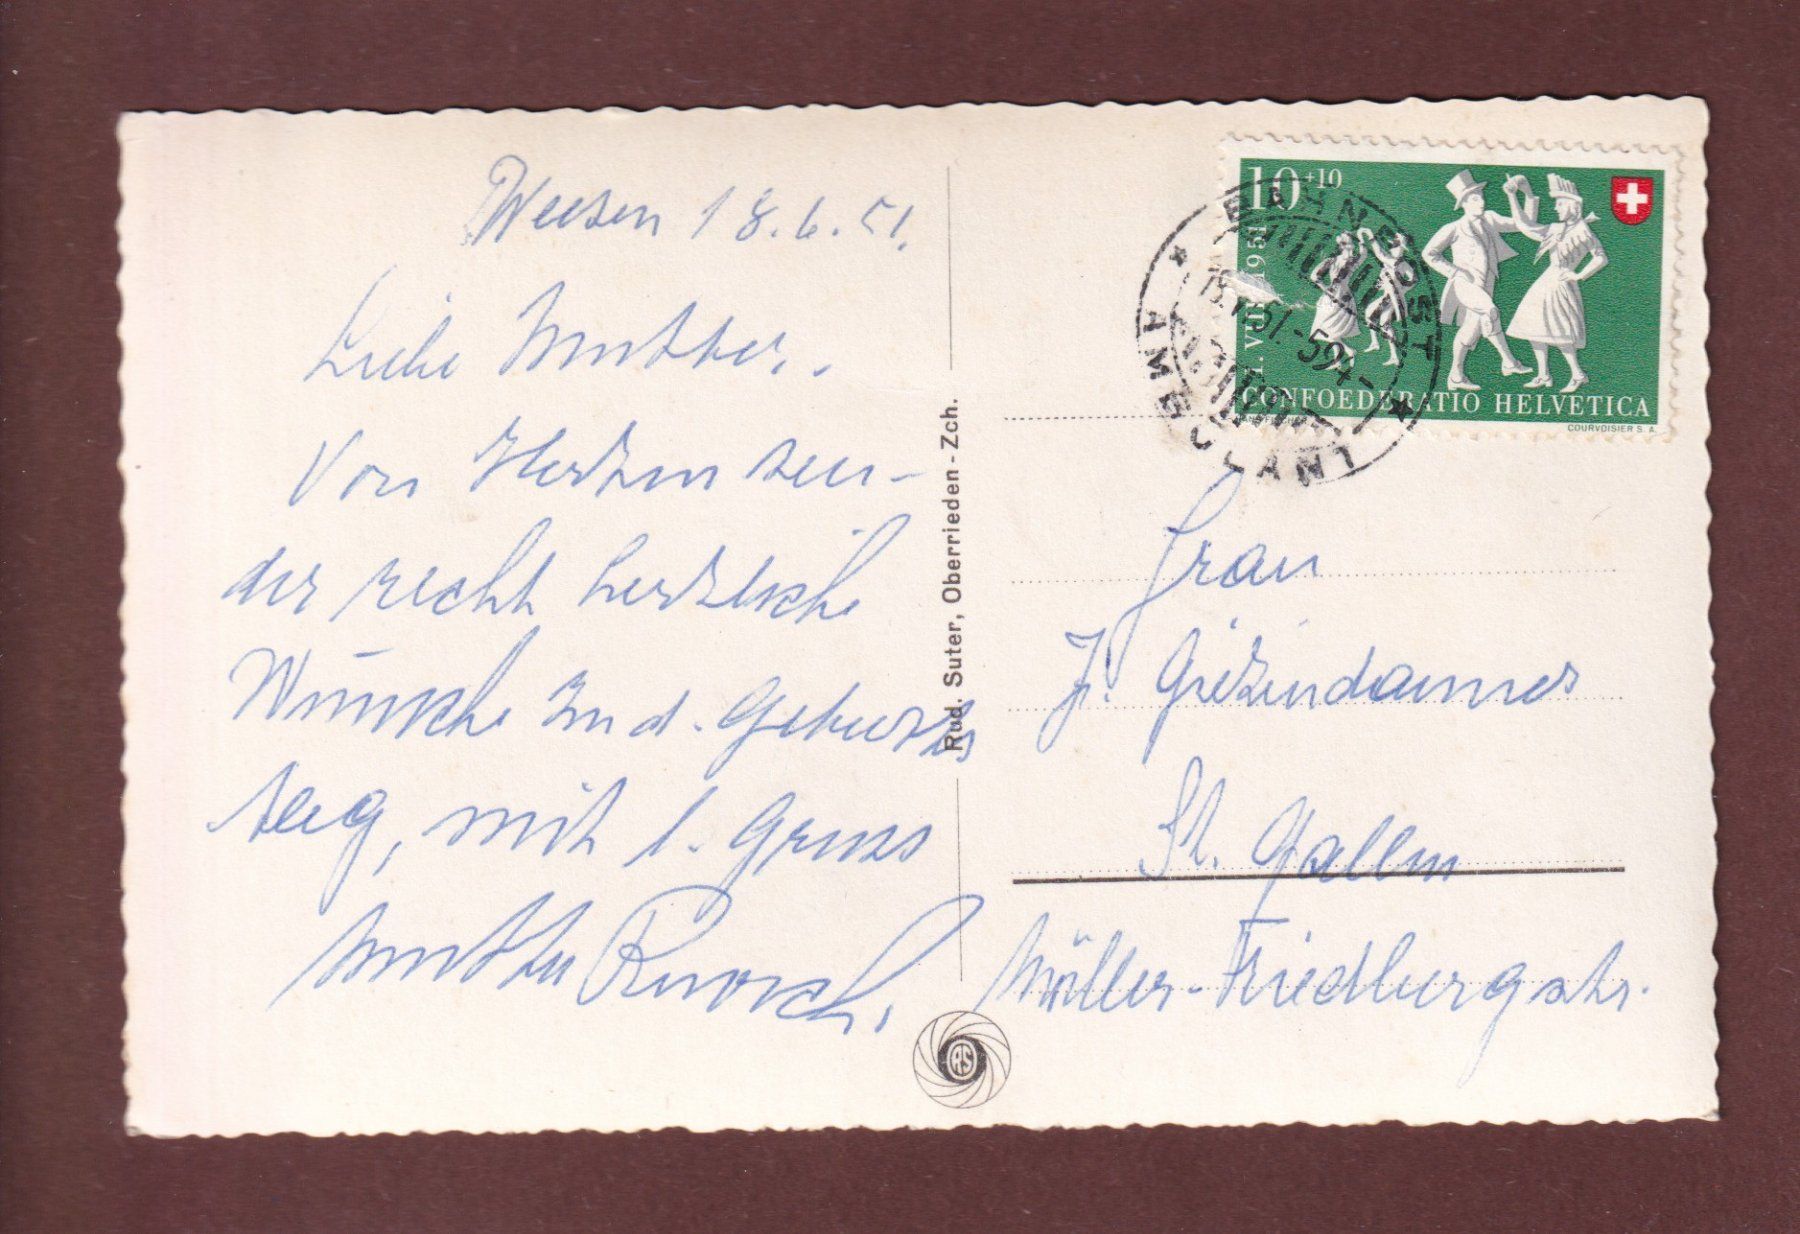 Weesen 18.6.51.
Liebe Mutter.
Von Herzen sen-
der recht herzliche
Wünsche zu d. Geburts
tag, mit l. Gruss
Mutter
Rud. Suter, Oberrieden - Zch.
RS
10+10
1951
CONFOEDERATIO HELVETICA
COURVOISIER S. A.
BAHNPOST
AMBULANT
Frau
J. Giezendanner
St. Gallen
Möller-Friedbergstr.